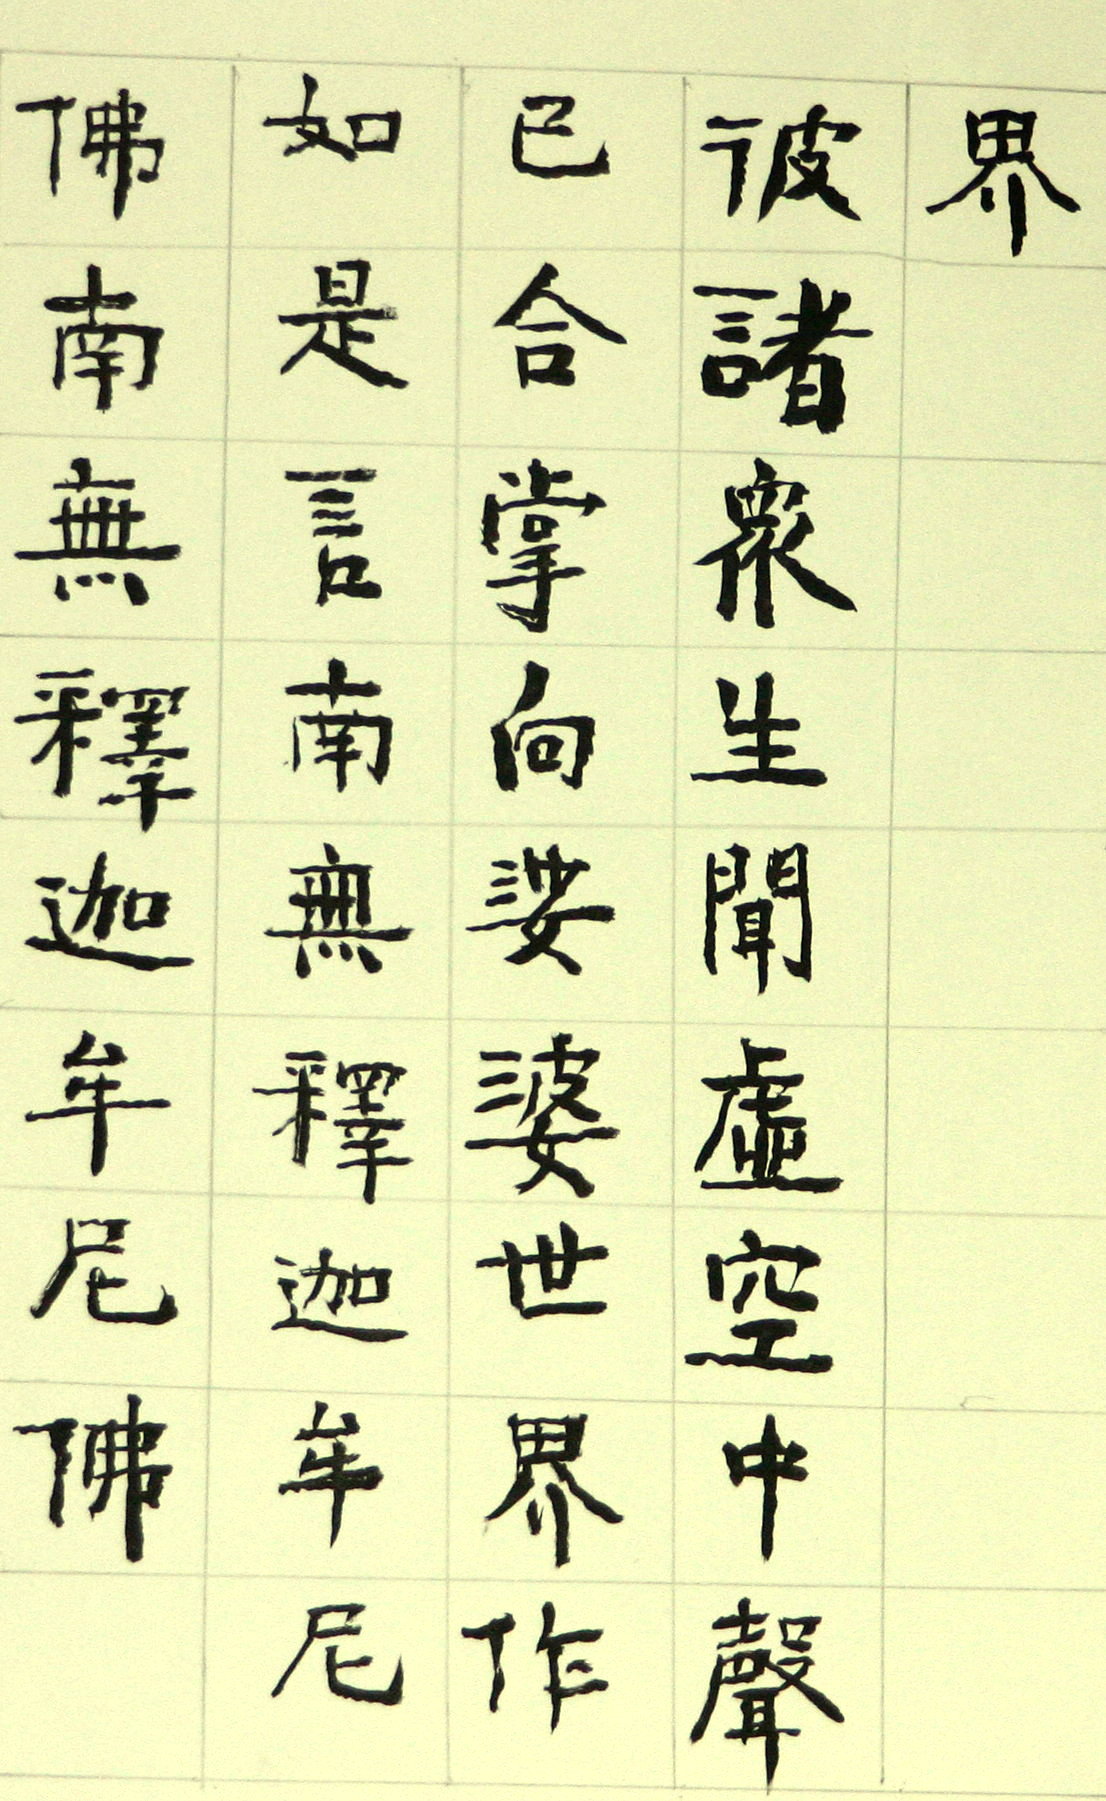 界
彼諸衆生聞虛空中聲
已合掌向娑婆世界作
如是言南無釋迦牟尼
佛南無釋迦牟尼佛